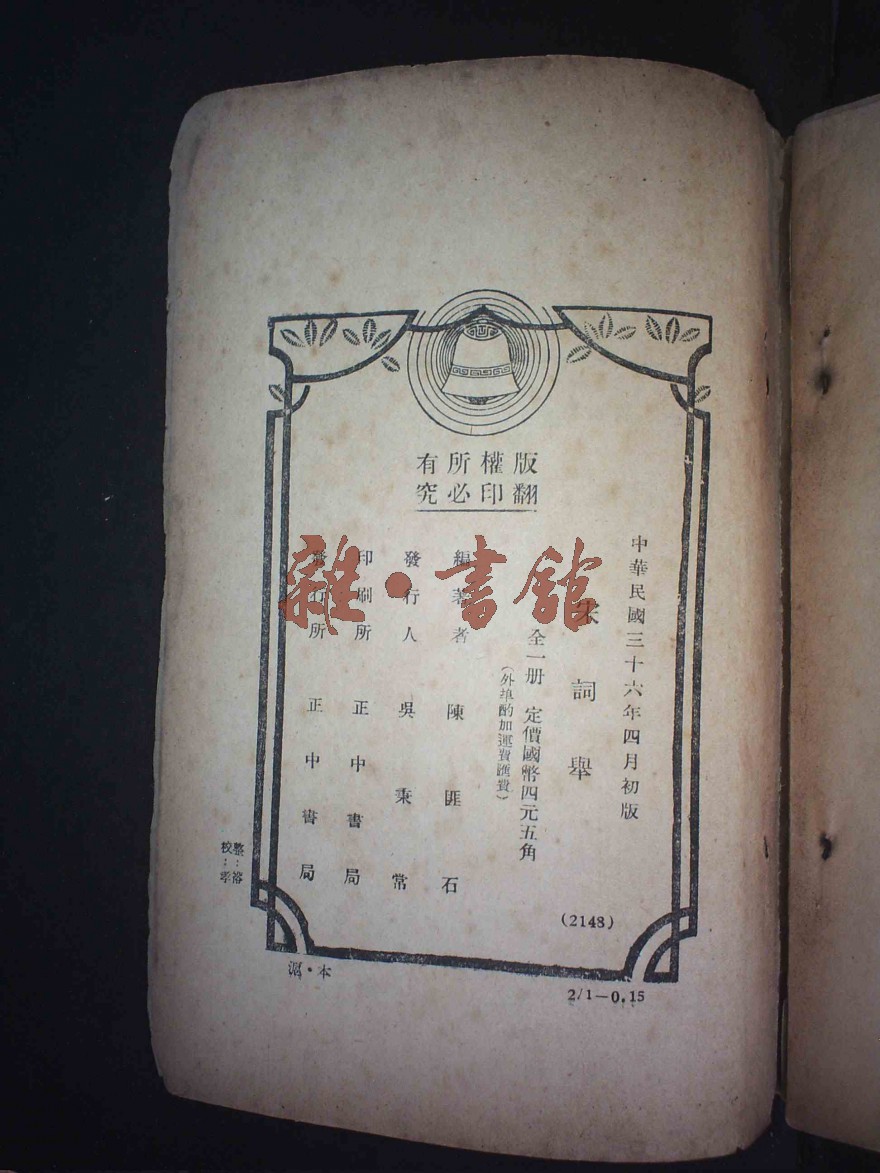 版權所有
翻印必究
中華民國三十六年四月初版
宋詞舉
全一册 定價國幣四元五角
(外埠酌加運費匯費)
編著者 陳匪石
發行人 吳秉常
印刷所 正中書局
發行所 正中書局
(2148)
整:裕
校:孝
滬·本
2/1—0.15
雜·書館